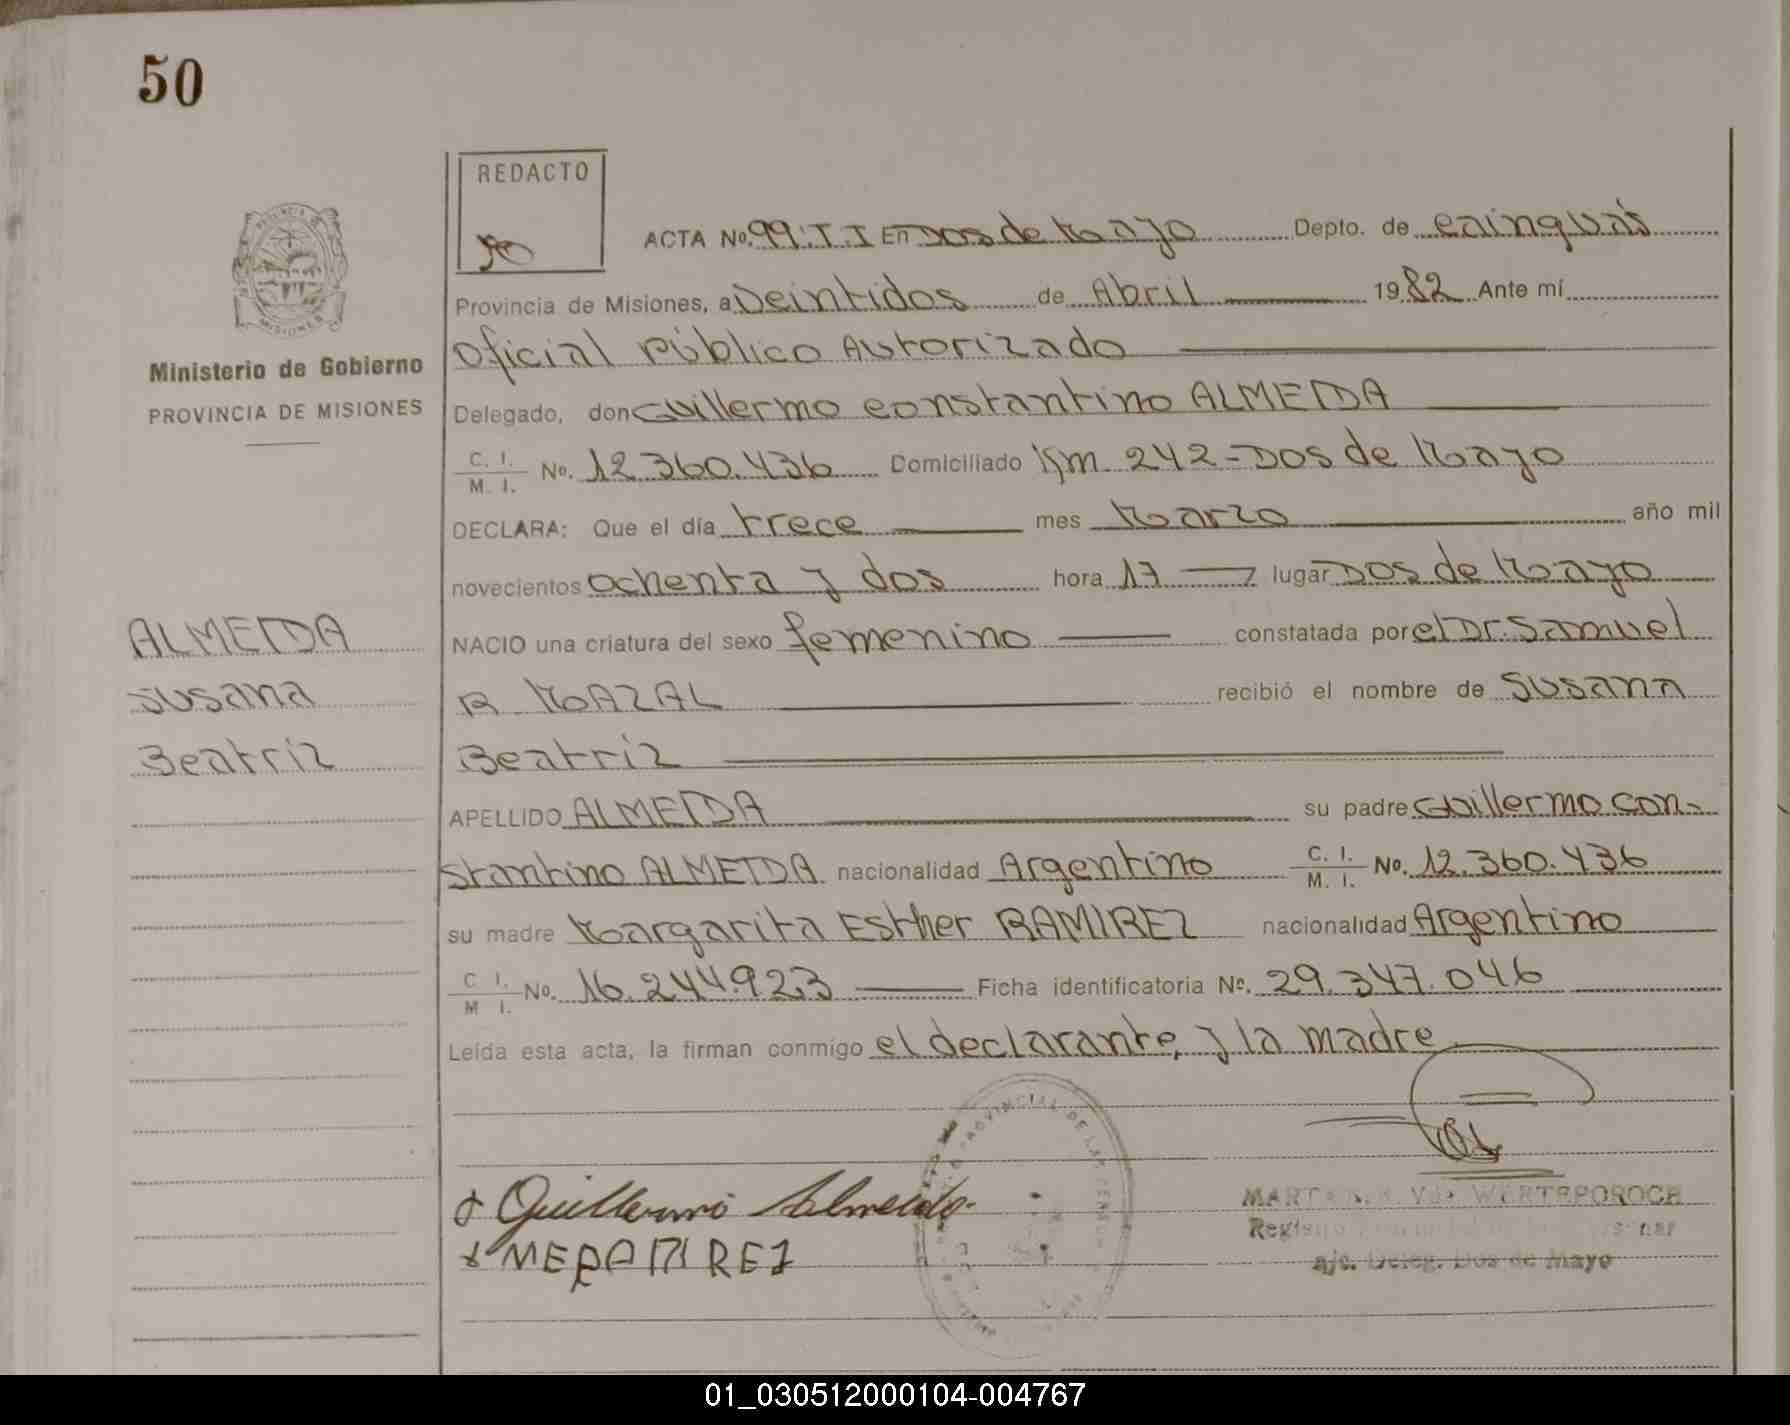 50
REDACTO
ACTA No. 99.T.I En Dos de Mayo Depto. de Cainguás
Provincia de Misiones, a Veintidos de Abril 1982 Ante mí
Oficial Público Autorizado
Ministerio de Gobierno
PROVINCIA DE MISIONES
Delegado, don Guillermo Constantino ALMEIDA
C. I.
M. I. No. 12.360.436 Domiciliado Km. 242-Dos de Mayo
DECLARA: Que el día trece mes Marzo año mil
novecientos ochenta y dos hora 17 lugar Dos de Mayo
NACIO una criatura del sexo femenino constatada por el Dr. Samuel
R. MAZAL recibió el nombre de Susana
Beatriz
ALMEIDA
Susana
Beatriz
APELLIDO ALMEIDA su padre Guillermo Con-
stantino ALMEIDA nacionalidad Argentino C. I. M. I. No. 12.360.436
su madre Margarita Esther RAMIREZ nacionalidad Argentino
C I.
M I. No. 16.244.923 Ficha identificatoria Nº. 29.347.046
Leída esta acta, la firman conmigo el declarante, y la madre
Guillermo Almeida
a/c. Deleg. Dos de Mayo
01_030512000104-004767